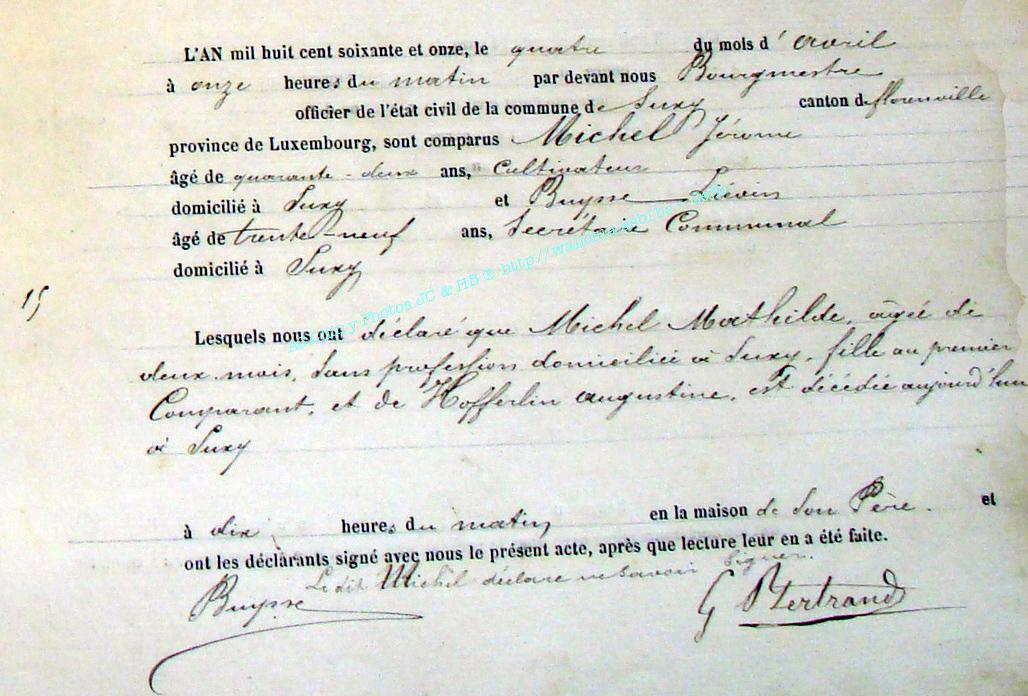 L'AN mil huit cent soixante et onze, le quatre du mois d'avril
à onze heures du matin par devant nous Bourgmestre
officier de l'état civil de la commune de Suxy canton de florenville
province de Luxembourg, sont comparus Michel Jérome
âgé de quarante-deux ans, Cultivateur
domicilié à Suxy et Buysse Liévin
âgé de trente-neuf ans, Secrétaire Communal
domicilié à Suxy
15
Lesquels nous ont déclaré que Michel Mathilde, âgée de
deux mois, Sans profession domiciliée à Suxy, fille au premier
Comparant, et de Hofferlin augustine, est décédée aujourd'hui
à Suxy
à dix heures du matin en la maison de Son Père. et
ont les déclarants signé avec nous le présent acte, après que lecture leur en a été faite.
Ledit Michel déclare ne Savoir Signer.
Buysse G Bertrand
Photos JC & HB ® http://